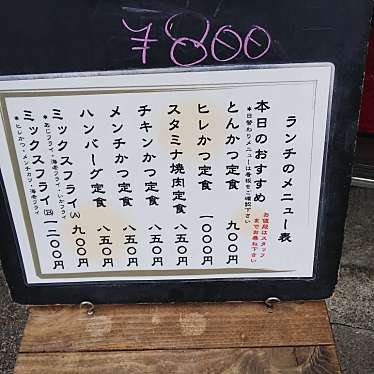 ¥800
ランチのメニュー表
本日のおすすめ
お値段はスタッフ
までお尋ね下さい
*日替わりメニューは看板をご確認下さい
とんかつ定食 九〇〇円
ヒレかつ定食 一〇〇〇円
スタミナ焼肉定食 八五〇円
チキンかつ定食 八五〇円
メンチかつ定食 八五〇円
ハンバーグ定食 八五〇円
ミックスフライ(A) 九〇〇円
*あじフライ・海老フライ・いかフライ
ミックスフライ(B) 一二〇〇円
*ヒレかつ・メンチカツ・海老フライ